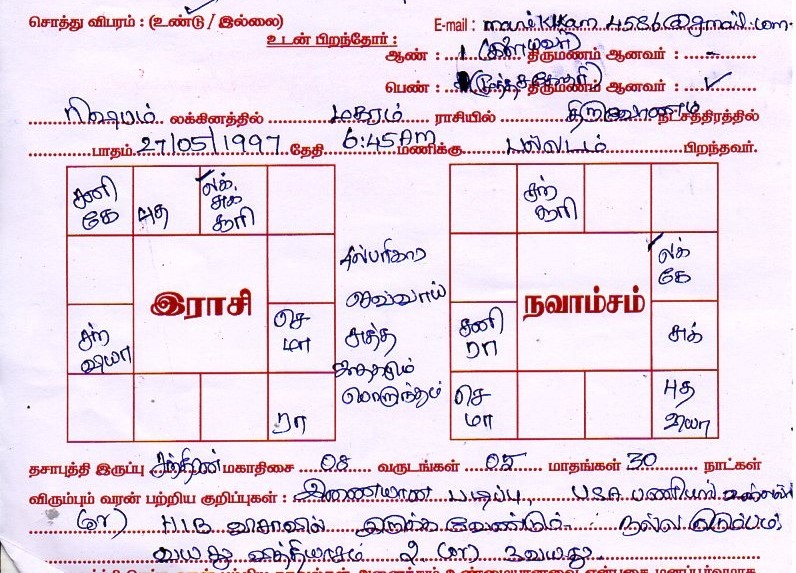 சொத்து விபரம் : (உண்டு / இல்லை) E-mail :
உடன் பிறந்தோர் :
ஆண் : 1 (இளையவர்) திருமணம் ஆனவர் : -
பெண் : திருமணம் ஆனவர் : ✓
ரிஷபம் லக்கினத்தில் மகரம் ராசியில் திருவோணம் நட்சத்திரத்தில்
பாதம் 27/05/1997 தேதி 6:45 AM மணிக்கு பல்லடம் பிறந்தவர்.
சனி
கே
புத
லக்
சுக்
சூரி
சந்
செ
மா
ரா
இராசி
செவ்வாய்
சுத்த
ஜாதகமும்
பொருந்தும்
சந்
சூரி
லக்
கே
சனி
ரா
சுக்
செ
மா
புத
நவாம்சம்
தசாபுத்தி இருப்பு சந்திரன் மகாதிசை 08 வருடங்கள் 05 மாதங்கள் 30 நாட்கள்
விரும்பும் வரன் பற்றிய குறிப்புகள் : இணையான படிப்பு, USA பணியில்
(or) H1B விசாவில் இருக்க வேண்டும். நல்ல குடும்பம்
வயது வித்தியாசம் 2 (or) 3 வயது.